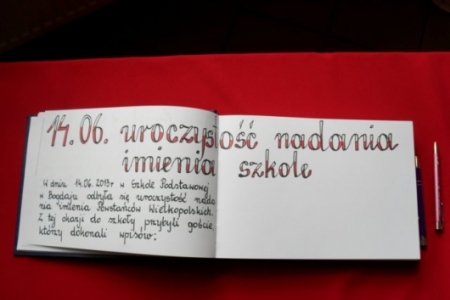 14.06. uroczystość nadania
imienia szkole
W dniu 14.06.2019r w Szkole Podstawowej
w Bogdaju odbyła się uroczystość nada
nia imienia Powstańców Wielkopolskich.
Z tej okazji do szkoły przybyli goście,
którzy dokonali wpisów: